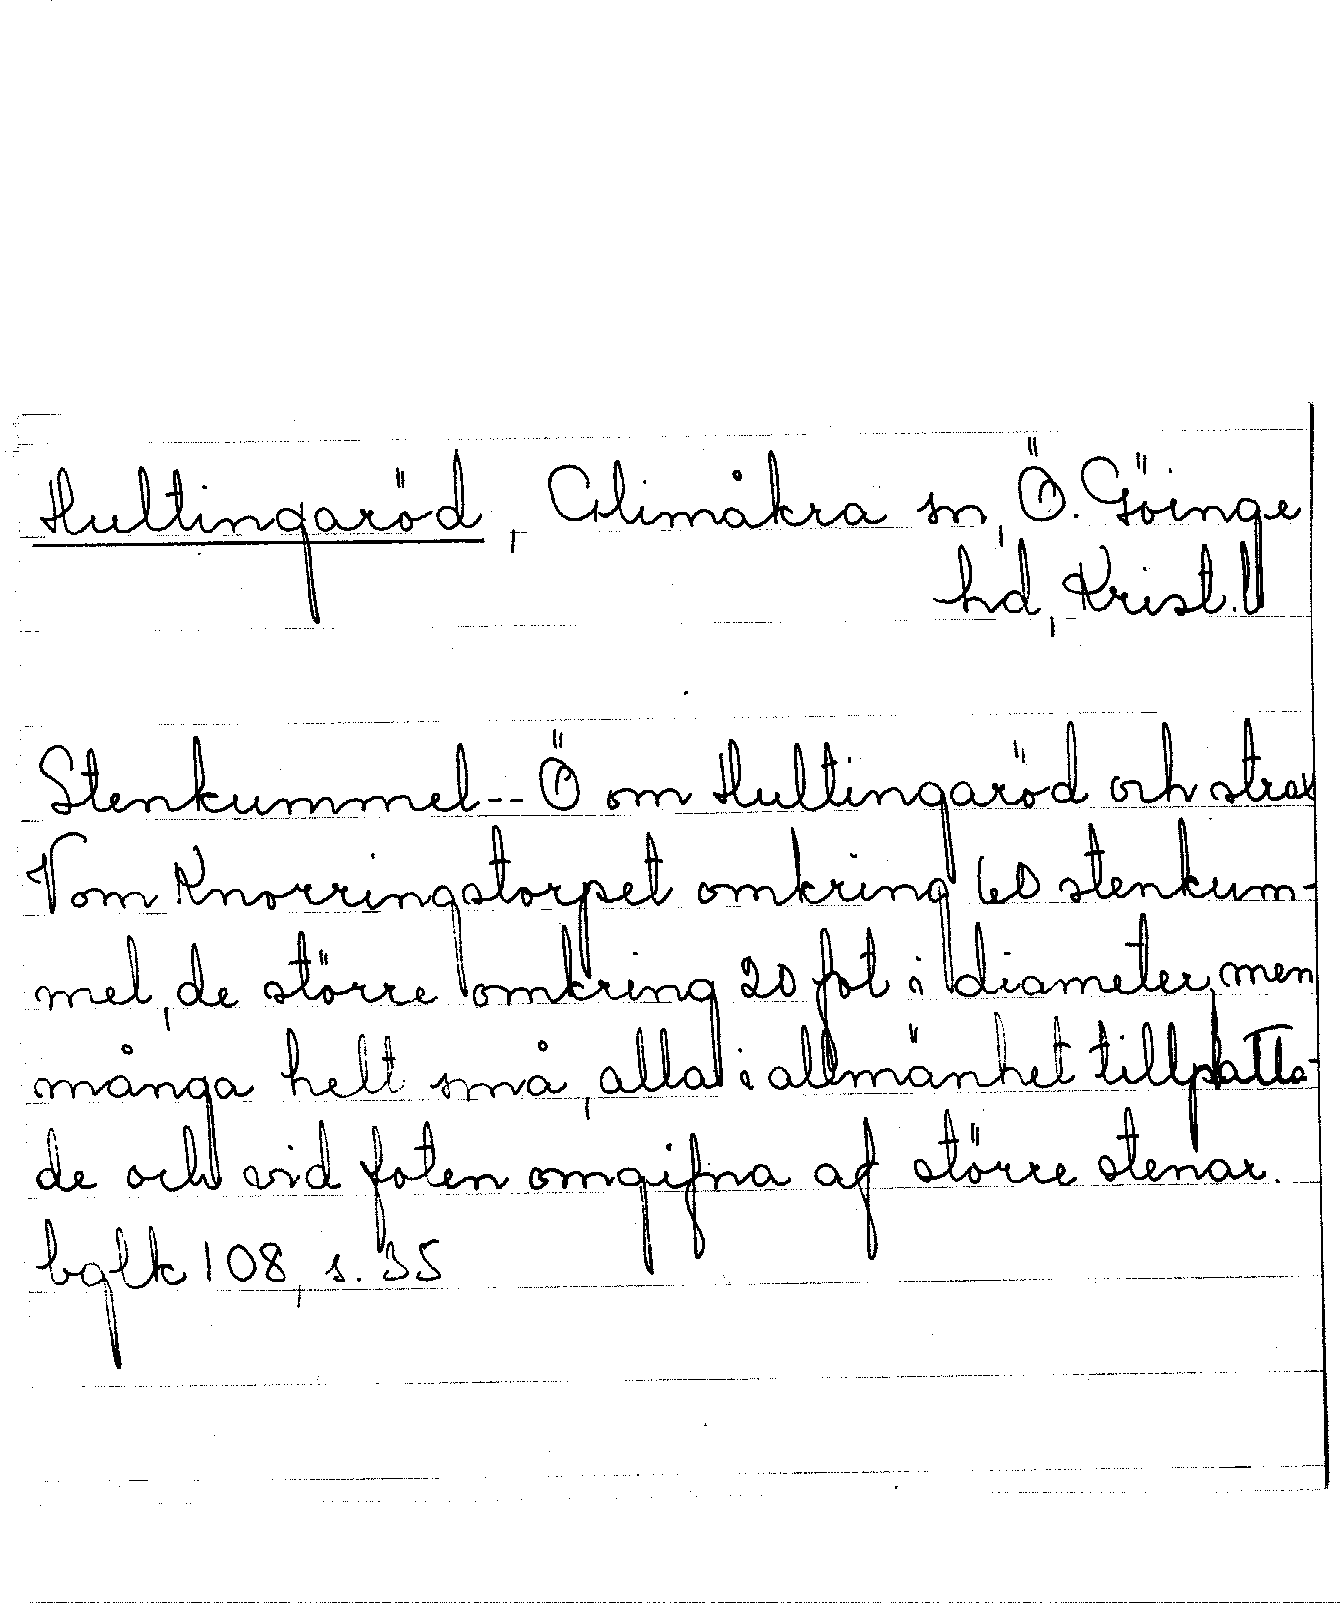 Hultingaröd, Glimåkra sn, Ö. Göinge
hd, Krist. l
Stenkummel -- Ö om Hultingaröd och strax
V om Knorringstorpet omkring 60 stenkum-
mel, de större omkring 20 fot i diameter, men
många helt små, alla i allmänhet tillplatta-
de och vid foten omgifna af större stenar.
bglk 108, s. 35